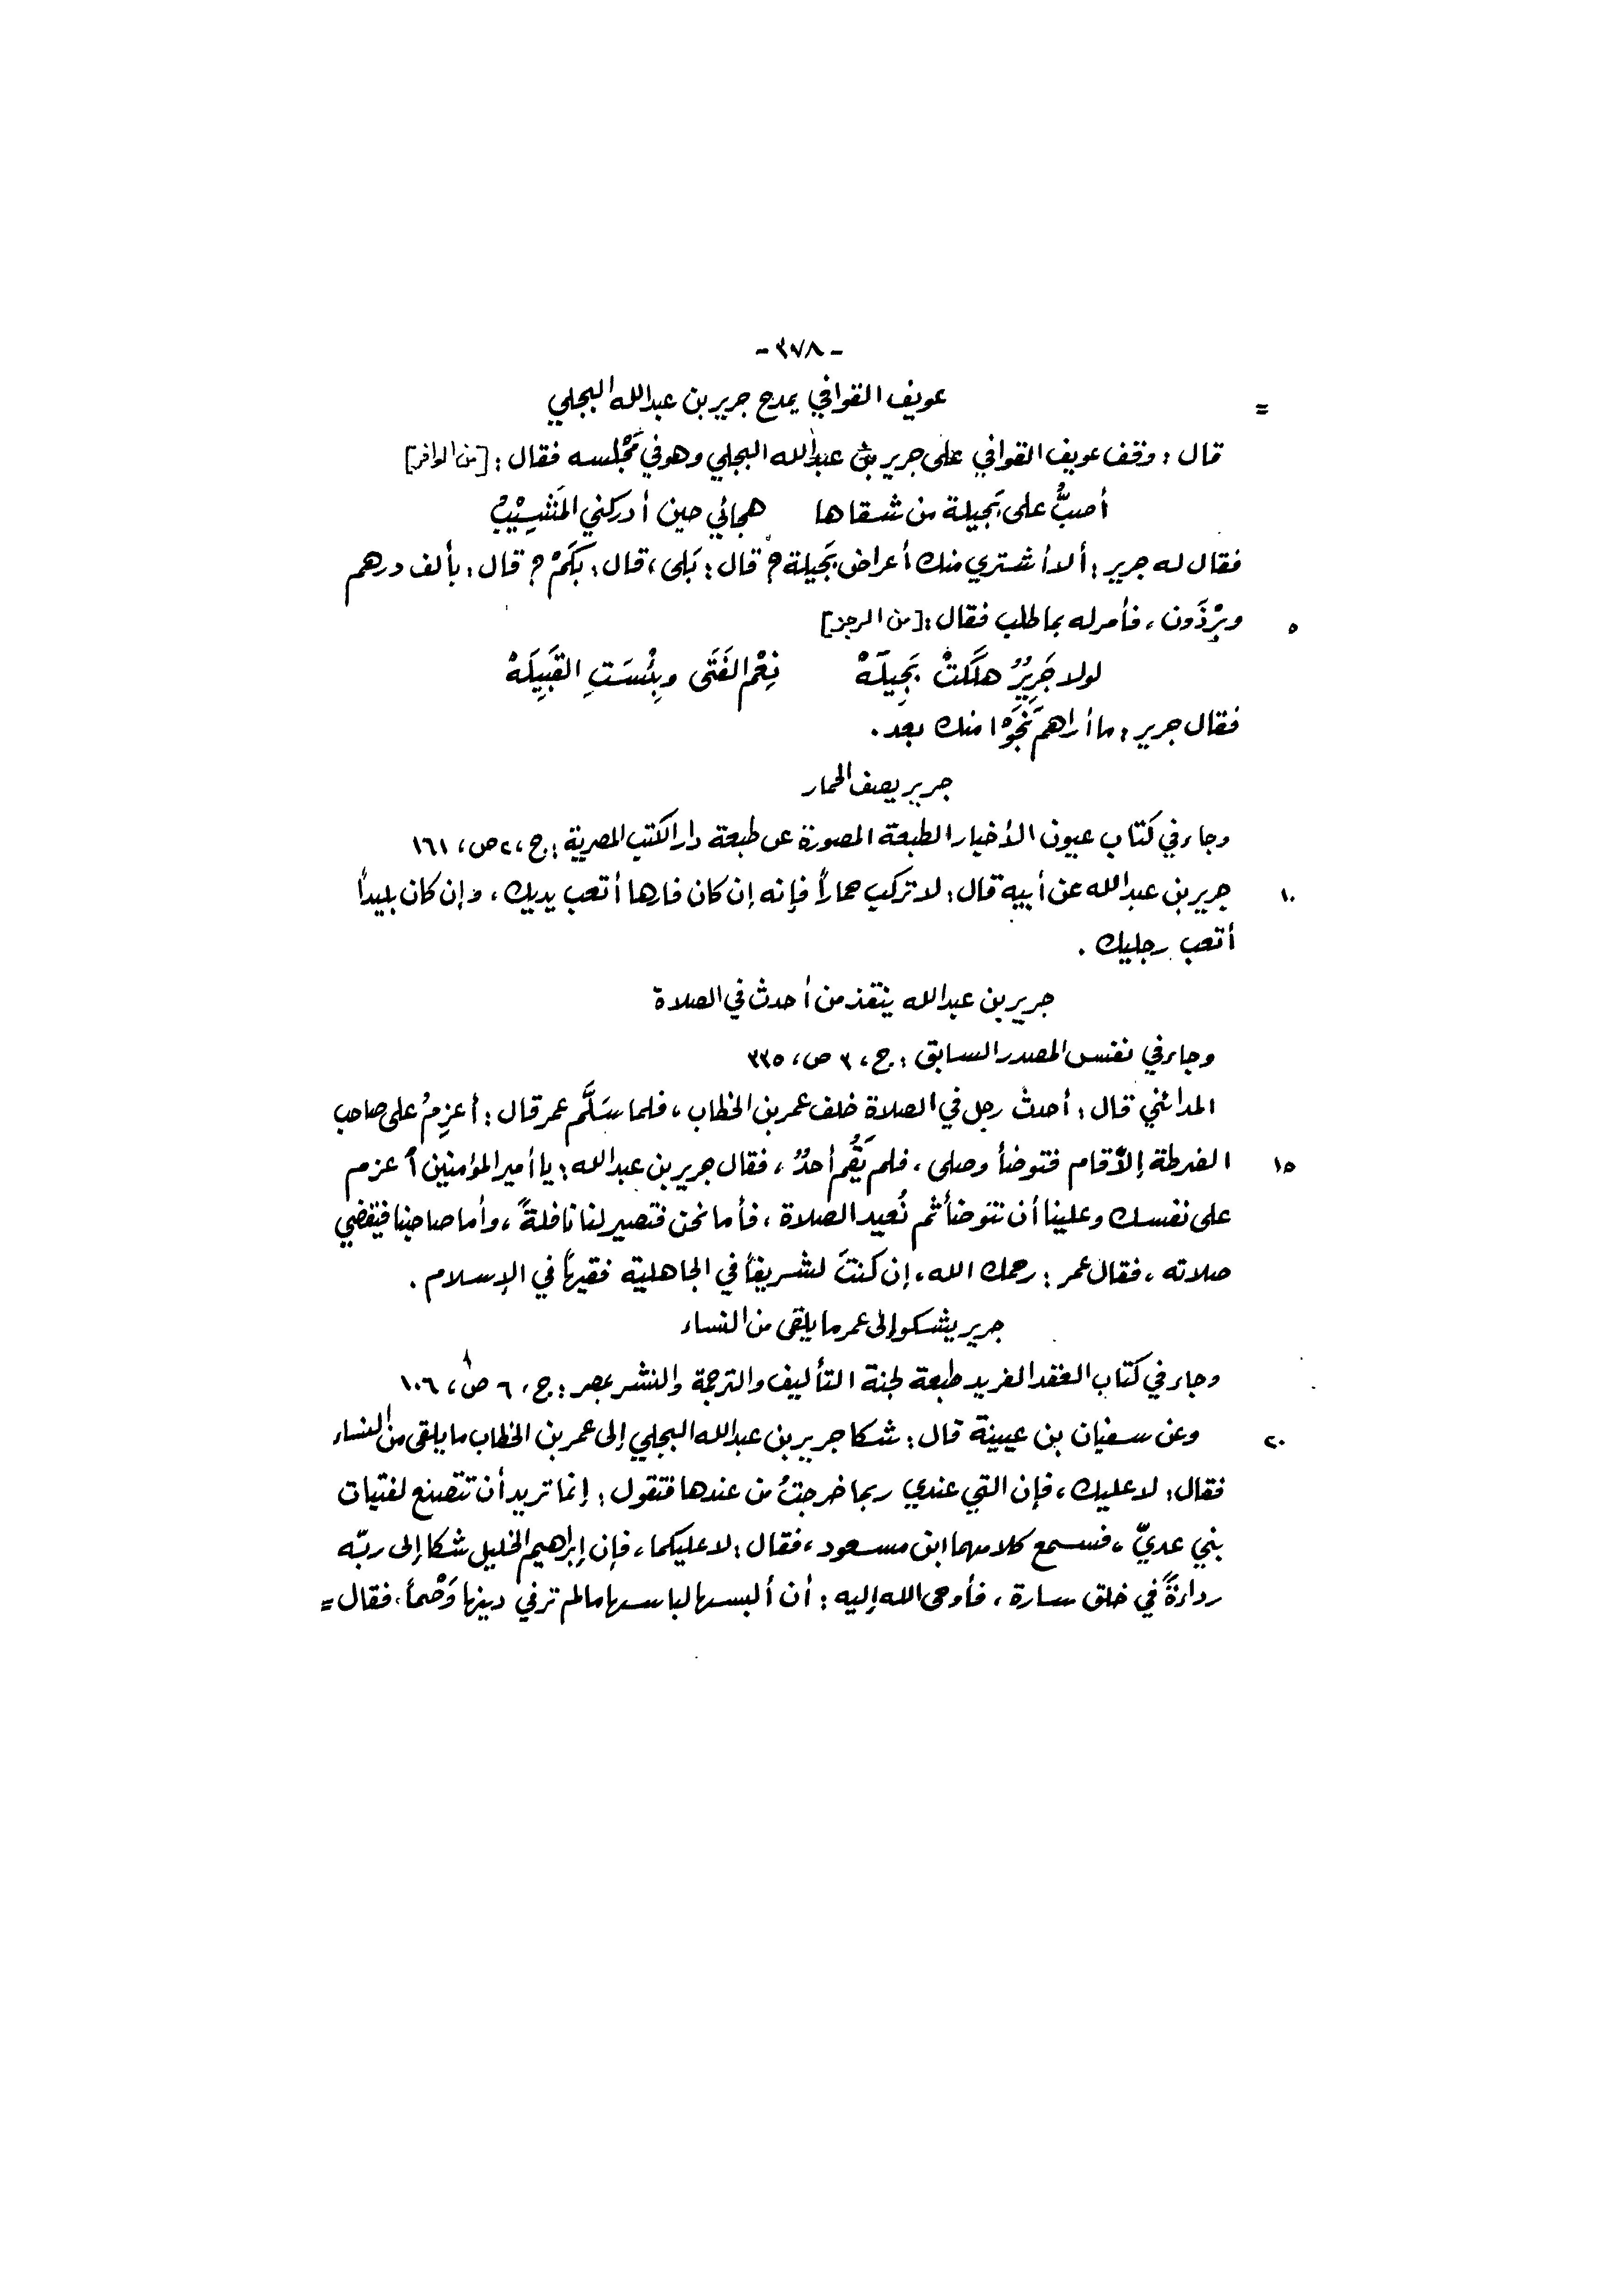 - ٣٧٨ -
= عويف القوافي يمدح جرير بن عبدالله البجلي
قال : وقف عويف القوافي على جرير بن عبدالله البجلي وهو في مَجْلسه فقال : [من الوافر]
أصبُّ على بَجيلة من شقاها هجائي حين أدركني المَشِيْبُ
فقال له جرير : ألا أشتري منك أعراض بَجيلة ؟ قال : بَلى ، قال : بكَمْ ؟ قال : بألف درهم
٥ وبِرْذَون ، فأمر له بما طلب فقال : [من الرجز]
لولا جَرِيرٌ هلَكتْ بَجِيلَهْ نِعْمَ الفَتَى وبِئْسَتِ القَبِيلَهْ
فقال جرير : ما أراهم نَجَوْا منك بعد .
جرير يصف الحمار
وجاء في كتاب عيون الأخبار الطبعة المصورة عن طبعة دار الكتب المصرية : ج ، ٢ ص ، ١٦١
١٠ جرير بن عبدالله عن أبيه قال : لا تركب حماراً فإنه إن كان فارها أتعب يديك ، وإن كان بليداً
أتعب رجليك .
جرير بن عبدالله ينقذ من أحدث في الصلاة
وجاء في نفس المصدر السابق : ج ، ٣ ص ، ٣٣٥
المدائني قال : أحدث رجل في الصلاة خلف عمر بن الخطاب ، فلما سَلَّم عمر قال : أعزِمُ على صاحب
١٥ الضرطة إلاَّ قام فتوضأ وصلى ، فلم يَقُم أحدٌ ، فقال جرير بن عبدالله : يا أمير المؤمنين أعزم
على نفسك وعلينا أن نتوضأ ثم نُعيد الصلاة ، فأما نحن فتصير لنا نافلةً ، وأما صاحبنا فيقضي
صلاته ، فقال عمر : رحمك الله ، إن كنتَ لشريفاً في الجاهلية فقيهاً في الإسلام .
جرير يشكو إلى عمر ما يلقى من النساء
وجاء في كتاب العقد الفريد طبعة لجنة التأليف والترجمة والنشر بمصر : ج ، ٦ ص ، ١٠٦
٢٠ وعن سفيان بن عيينة قال : شكا جرير بن عبدالله البجلي إلى عمر بن الخطاب ما يلقى من النساء
فقال : لا عليك ، فإن التي عندي ربما خرجتُ من عندها فتقول : إنما تريد أن تتصنع لفتيات
بني عديّ ، فسمع كلامهما ابن مسعود ، فقال : لا عليكما ، فإن إبراهيم الخليل شكا إلى ربّه
رداءةً في خلق سارة ، فأوحى الله إليه : أن ألبسها لباسها ما لم تر في دينها وَصْماً ، فقال =